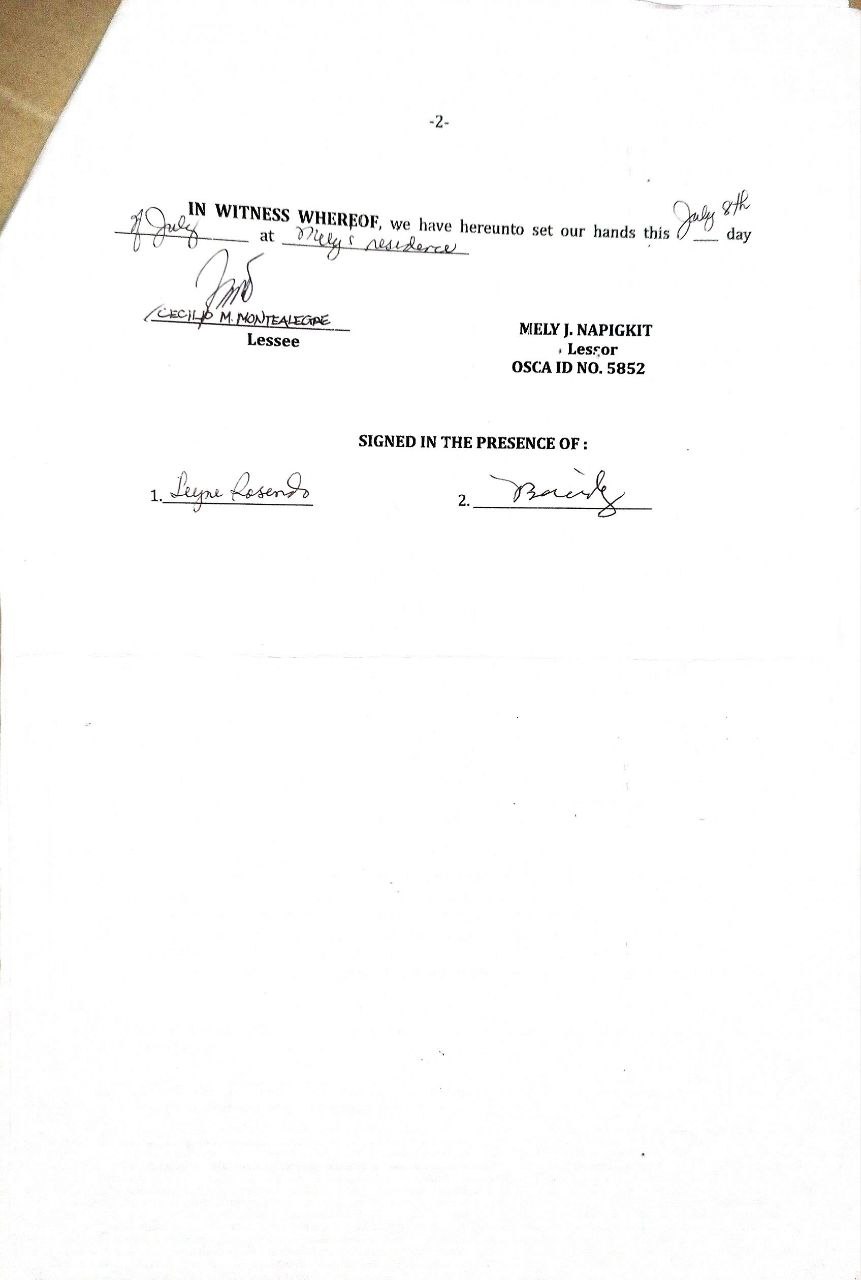 -2-
IN WITNESS WHEREOF, we have hereunto set our hands this July 8th day
of July at Mely's residence
CECILIO M. MONTEALEGRE
Lessee
MELY J. NAPIGKIT
Lessor
OSCA ID NO. 5852
SIGNED IN THE PRESENCE OF :
1. Leyne Rosendo
2.